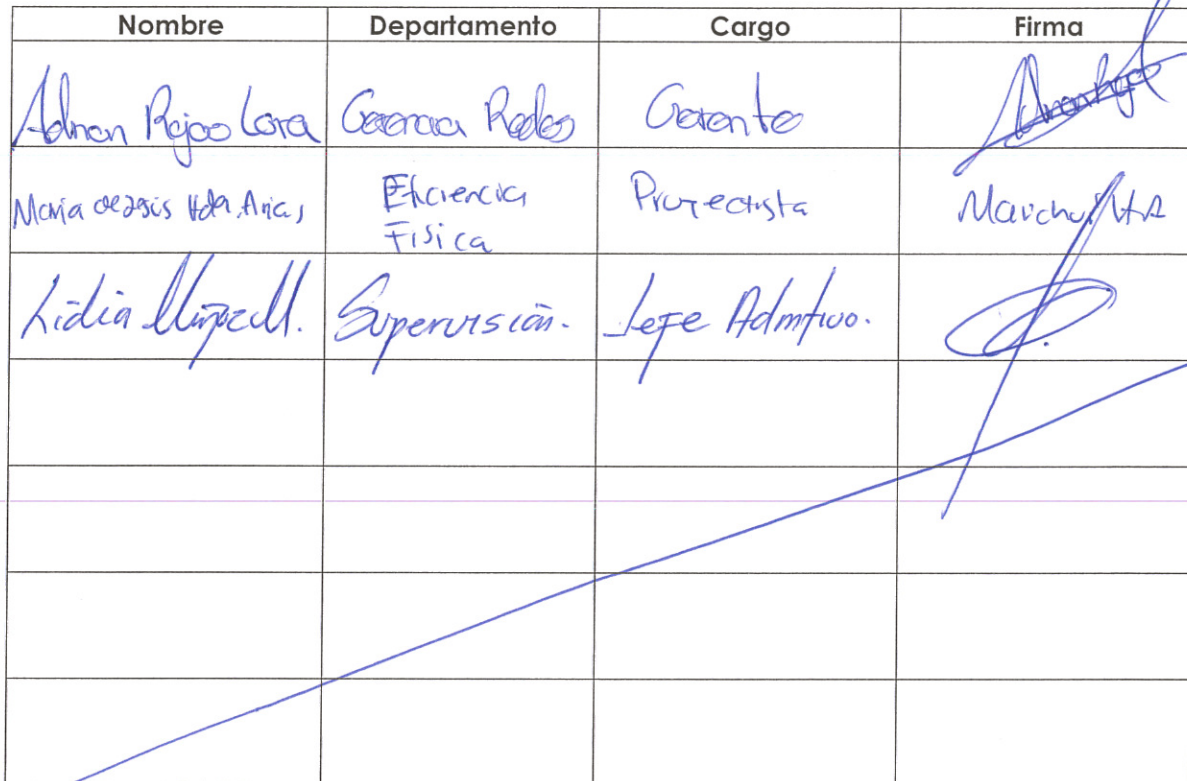 Nombre Departamento Cargo Firma
Adrian Rojas Lora Gerencia Redes Gerente
Maria de Hda. Arias Eficiencia Fisica Proyectista
Lidia Supervisión. Jefe Admtivo.